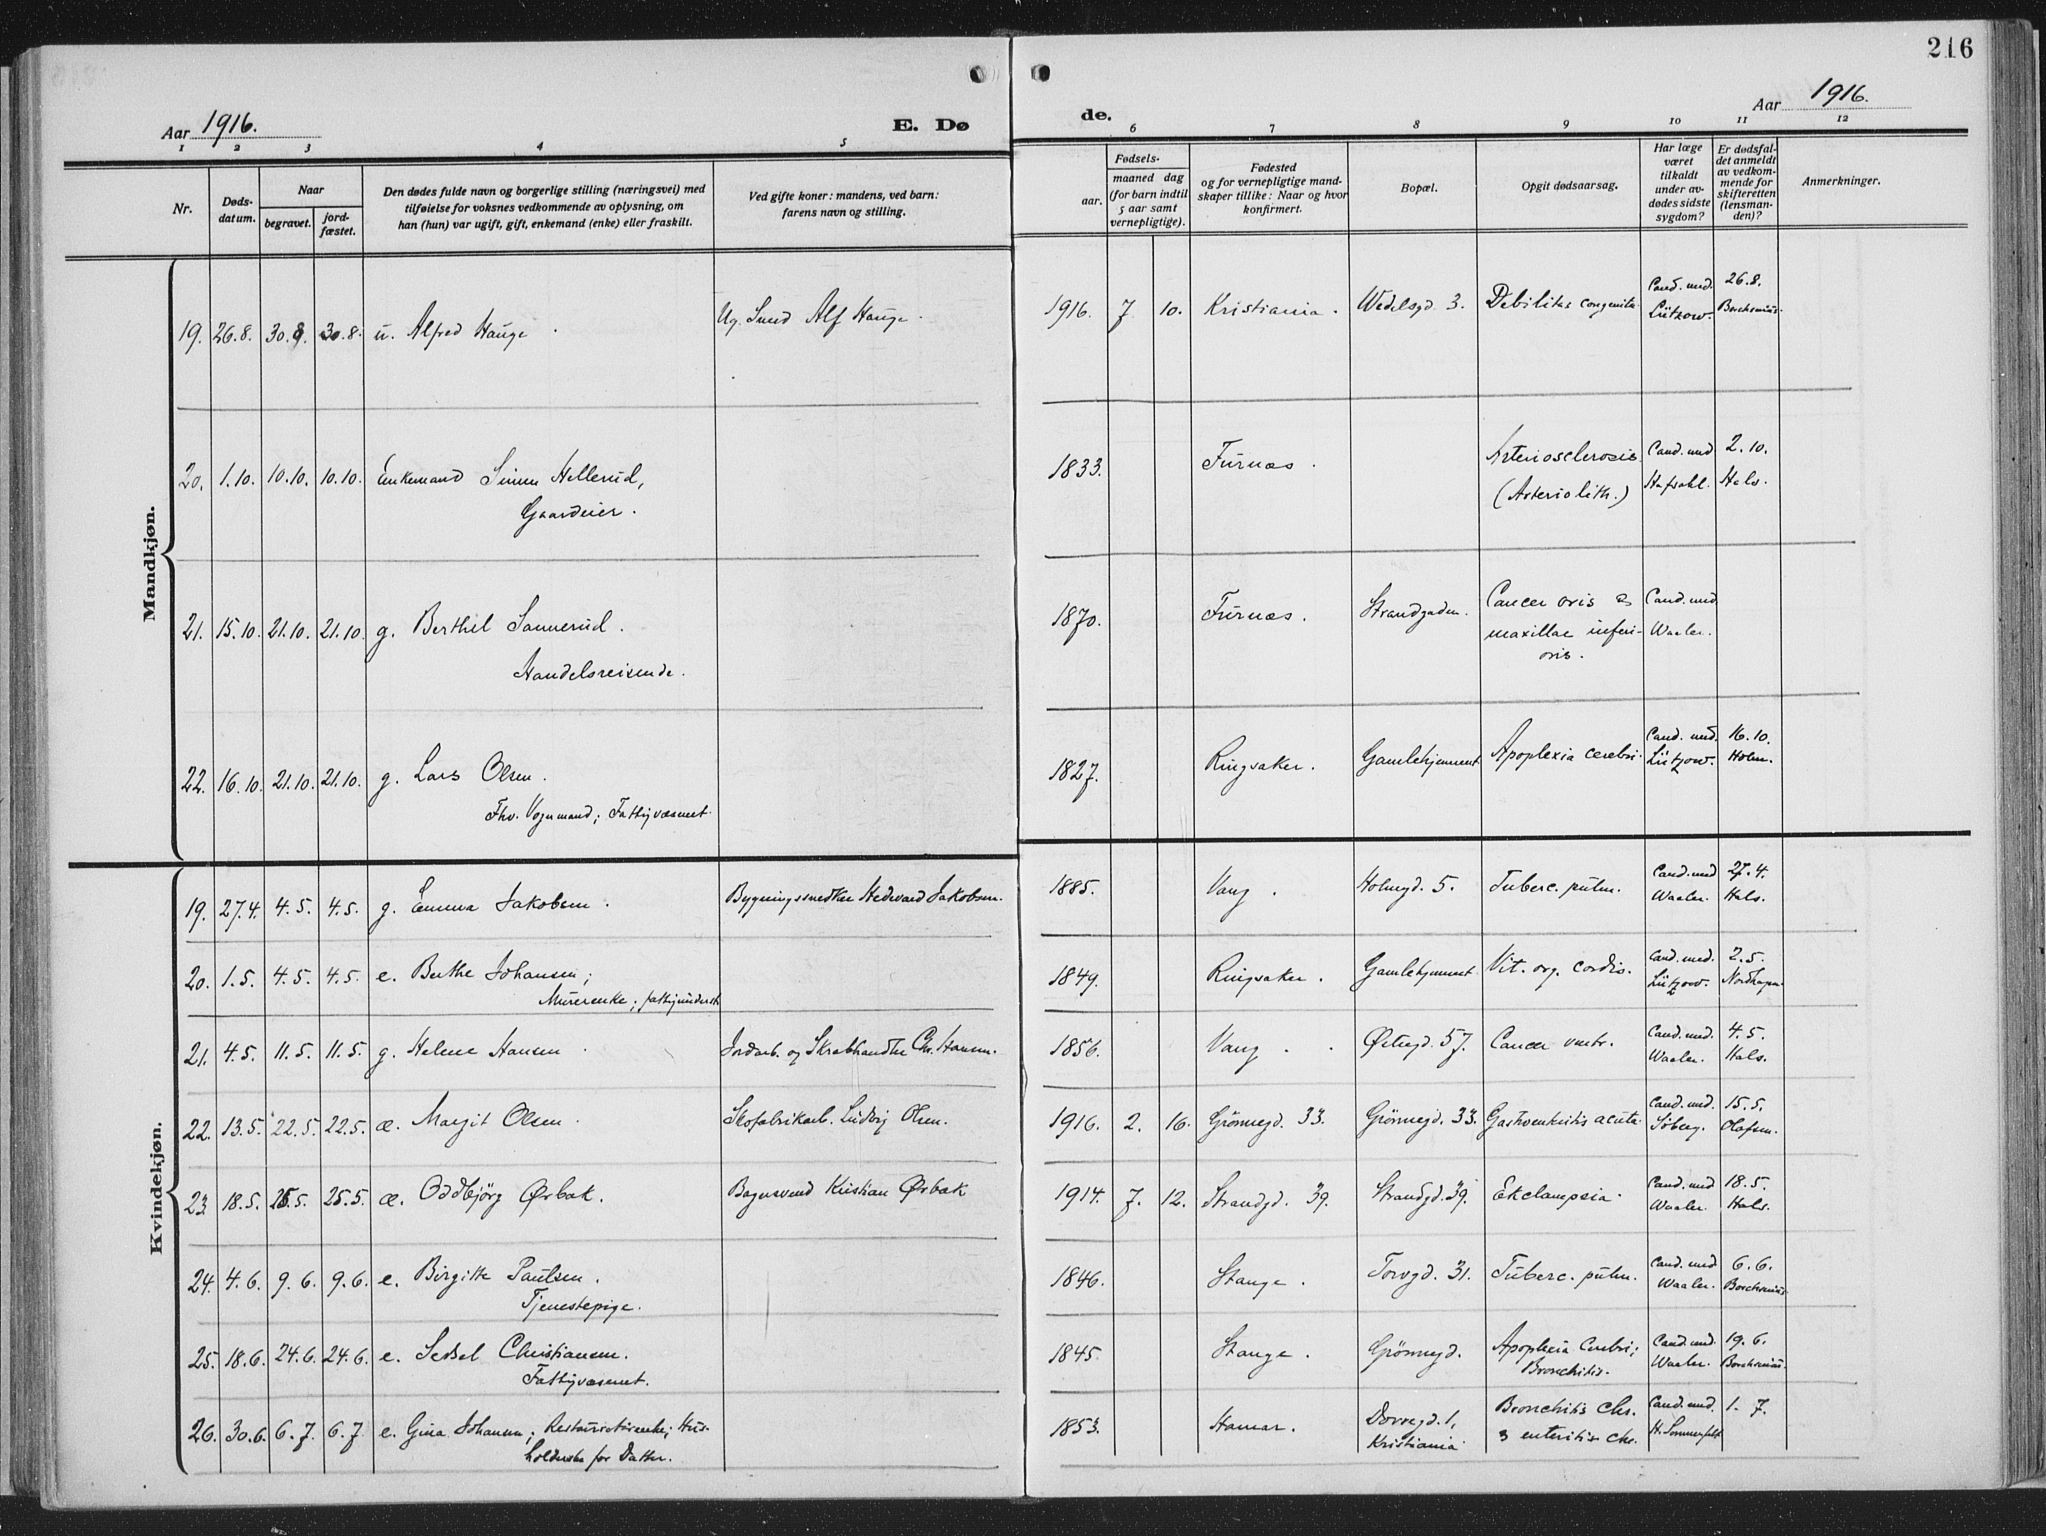 216
Aar 1916.
E. Dø
de.
Aar 1916.
1 2 3 4 5
6 7 8 9 10 11 12
Nr.
Døds-
datum.
Naar
begravet.
jord-
fæstet.
Den dødes fulde navn og borgerlige stilling (næringsvei) med
tilføielse for voksnes vedkommende av oplysning, om
han (hun) var ugift, gift, enkemand (enke) eller fraskilt.
Ved gifte koner: mandens, ved barn:
farens navn og stilling.
Fødsels-
aar.
maaned dag
(for barn indtil
5 aar samt
vernepligtige).
Fødested
og for vernepligtige mand-
skaper tillike: Naar og hvor
konfirmert.
Bopæl.
Opgit dødsaarsag.
Har læge
været
tilkaldt
under av-
dødes sidste
sygdom?
Er dødsfal-
det anmeldt
av vedkom-
mende for
skifteretten
(lensman-
den)?
Anmerkninger.
Mandkjøn.
19. 26.8. 30.8. 30.8. u. Alfred Hauge. Ug. Smed Alf Hauge. 1916. 7 10. Kristiania. Wedelsgd 3. Debilitas congenita. Cand. med. 26.8.
Lützow. Borchsenius.
20. 1.10. 10.10. 10.10. Enkemand Simen Hellerud, 1833. Furnæs. Arteriosclerosis Cand. med 2.10.
Gaardeier. (Arteriolith.) Hafsahl. Hals.
21. 15.10. 21.10. 21.10. g. Berthel Sannerud. 1870. Furnæs. Strandgaden. Cancer oris & Cand. med
Handelsreisende. maxillae inferi- Waaler.
oris.
22. 16.10. 21.10. 21.10. g. Lars Olsen. 1827. Ringsaker. Gamlehjemmet Apoplexia cerebri. Cand. med. 16.10.
Fhv. Vognmand; Fattigvæsenet. Lützow. Holm.
Kvindekjøn.
19. 27.4. 4.5. 4.5. g. Emma Jakobsen. Bygningssnedker Hedevard Jakobsen. 1885. Vang. Holmgd. 5. Tuberc. pulm. Cand. med 27.4.
Waaler. Hals.
20. 1.5. 4.5. 4.5. e. Berthe Johansen; 1849. Ringsaker. Gamlehjemmet Vit. org. cordis. Cand. med. 2.5.
Murerenke; fattigunderst. Lützow.
21. 4.5. 11.5. 11.5. g. Helene Hansen Jordarb. og Skrabhandler Chr. Hansen. 1856. Vang. Østregd. 57. Cancer ventr. Cand. med. 4.5.
Waaler. Hals.
22. 13.5. 22.5. 22.5. æ. Margit Olsen. Skofabrikarb. Ludvig Olsen. 1916. 2. 16. Grønnegd. 33. Grønnegd. 33. Gastroenteritis acuta Cand. med. 15.5.
Söberg. Olafsen.
23. 18.5. 25.5. 25.5. æ. Oddbjörg Ørbak. Bagersvend Kristian Ørbak 1914. 7. 12. Strandgd. 39. Strandgd. 39. Eklampsia. Cand. med 18.5.
Waaler. Hals.
24. 4.6. 9.6. 9.6. e. Birgitte Paulsen. 1846. Stange. Torvgd. 31. Tuberc. pulm. Cand. med 6.6.
Tjenestepige. Waaler. Borchsenius.
25. 18.6. 24.6. 24.6. e. Sedsel Christiansen. 1845. Stange. Grönnegd. Apoplexia Cerebri; Cand. med. 19.6.
Fattigvæsenet. Bronchitis. Waaler. Borchsenius.
26. 30.6. 6.7. 6.7. e. Gina Johansen; Hus- 1853. Hamar. Dovregd. 1, Bronchitis chr. Cand. med. 1.7.
holderske for Datter. Kristiania & enteritis chr. H. Sommerfelt